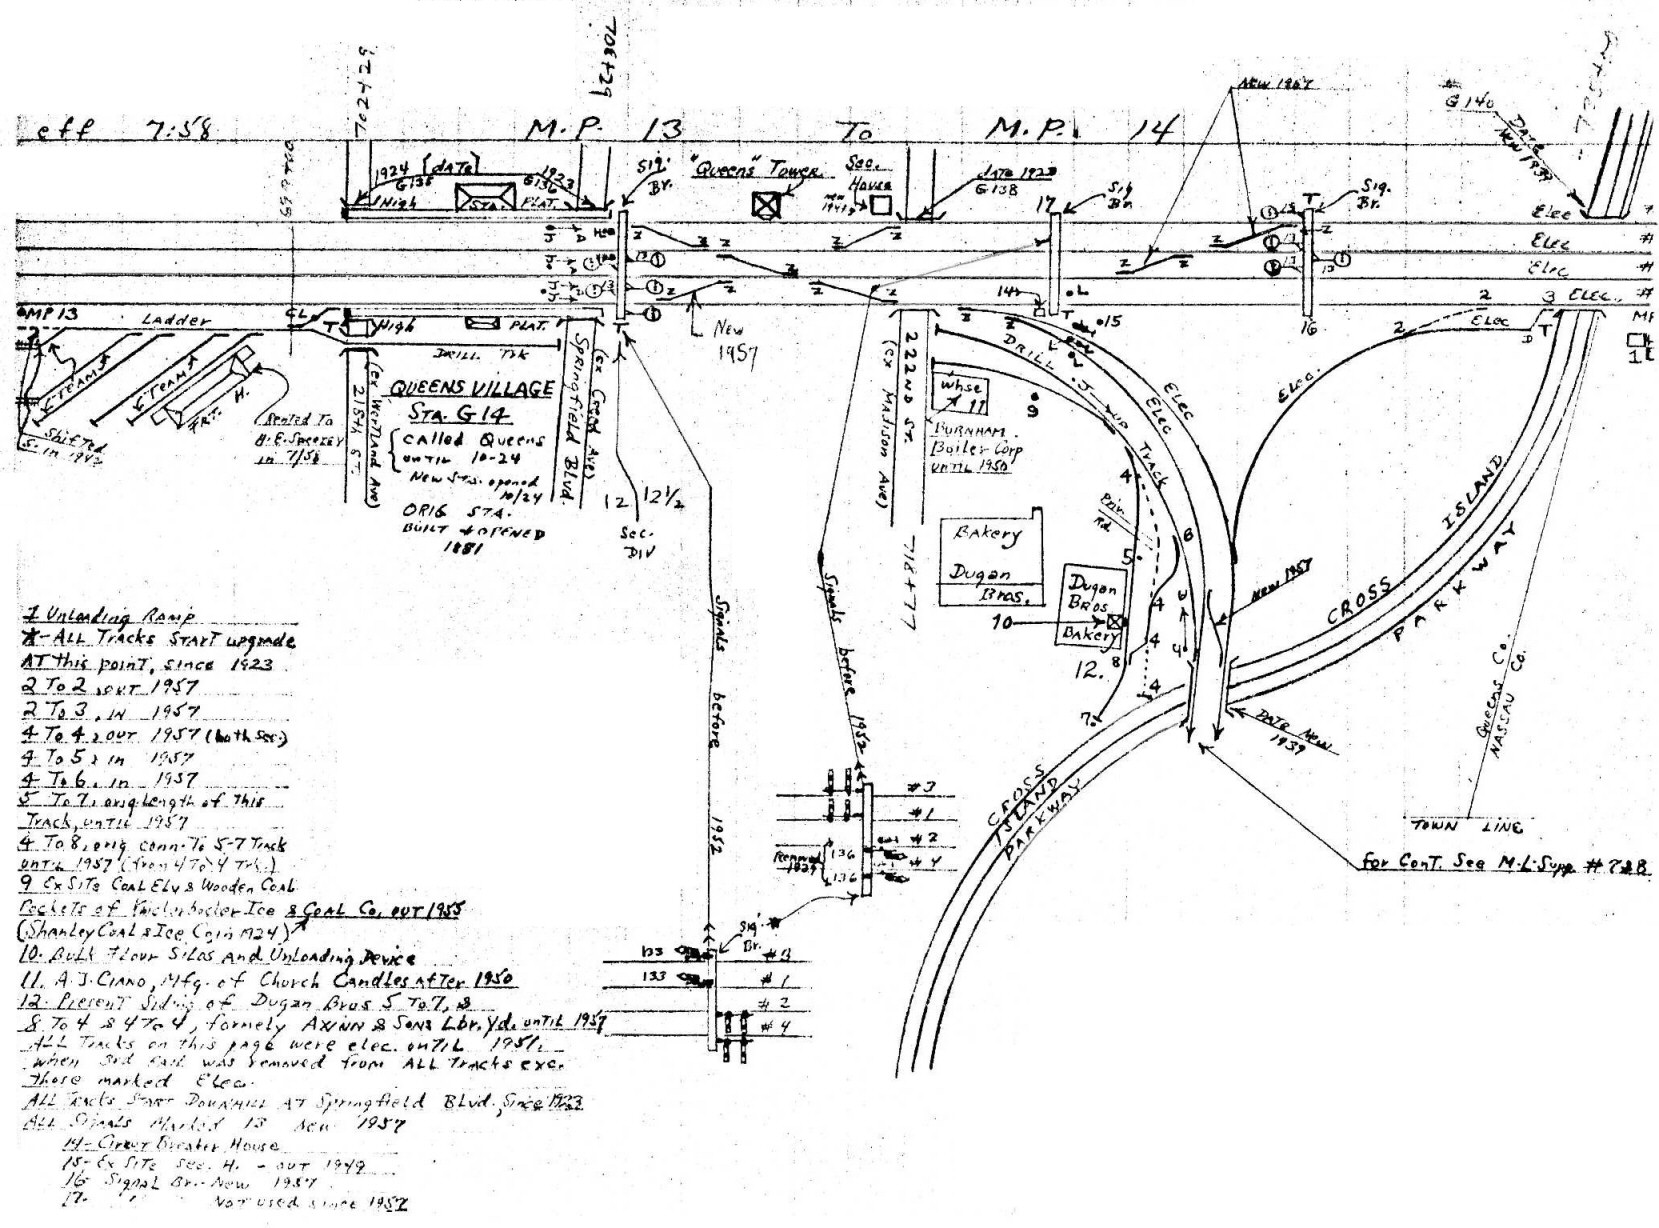 eff 7:58 M.P. 13 To M.P. 14
702+29
708+29
699+00
1924 [DATE] 1923
G135 G136
High STA. PLAT.
Sig. Br.
"Queens" Tower
Sec. House
DATE 1923
G138
17
Sig Br.
New 1957
T
Sig. Br.
# G 140
DATE NEW 1939
Elec
Elec
Elec
Elec.
MP 13
Ladder
CL
T
High PLAT.
DRILL TRK
New 1957
14
L
T
15
16
2 3
2 Elec T
D
TEAMS
TEAMS
FRT. H.
Shifted S. in 1942
Rented To
H.E. Speezey
in 7/58
218TH ST.
(ex Wertland Ave)
QUEENS VILLAGE
STA. G14
Called Queens
until 10-24
New Sta. opened
10/24
ORIG STA.
BUILT & OPENED
1881
Springfield Blvd.
(ex Creed Ave)
12 12 1/2
Sec. DIV
222ND ST.
(ex Madison Ave)
718+77
DRILL
J-UP Track
Elec
Elec
Elec.
Whse
11
9
BURNHAM
Boiler Corp
until 1950
Priv. Rd
Bakery
Dugan
Bros.
Dugan
Bros
Bakery
10
12.
4
5
6
4
4
8
4
7
New 1957
Date New
1939
CROSS ISLAND
PARKWAY
CROSS
ISLAND
PARKWAY
Queens Co.
NASSAU Co.
TOWN LINE
For Cont. See M-L-Supp. # 7&8
Signals before 1952
Signals before 1952
#3
#1
136 #2
136 #4
Removed
Sig. Br. *
133 #3
133 #1
#2
#4
1 Unloading Ramp
*-ALL Tracks START upgrade
AT this point, since 1923
2 To 2, out 1957
2 To 3, in 1957
4 To 4, out 1957 (both sec.)
4 To 5, in 1957
4 To 6, in 1957
5 To 7, orig length of this
Track, until 1957
4 To 8, orig. conn. To 5-7 Track
until 1957 (from 4 To 4 Trk.)
9 Ex Site Coal Elv & Wooden Coal
Pockets of Knickerbocker Ice & COAL Co, out 1955
(Shanley Coal & Ice Co in M24)
10. Bulk Flour Silos And Unloading Device
11. A.J. CIANO, Mfg. of Church Candles After 1950
12. Present Siding of Dugan Bros 5 To 7, &
8 To 4 & 4 To 4, formely AXINN & SONS Lbr. Yd. until 1957
ALL Tracks on this page were elec. until 1951,
when 3rd rail was removed from ALL Tracks exc.
those marked Elec.
ALL Tracks START DOWNHILL AT Springfield BLvd. Since 1923
ALL Signals Marked 13 New 1957
14- Circuit Breaker House
15- Ex Site Sec. H. - out 1949
16 Signal Br. - New 1957
17. " " Not used since 1952